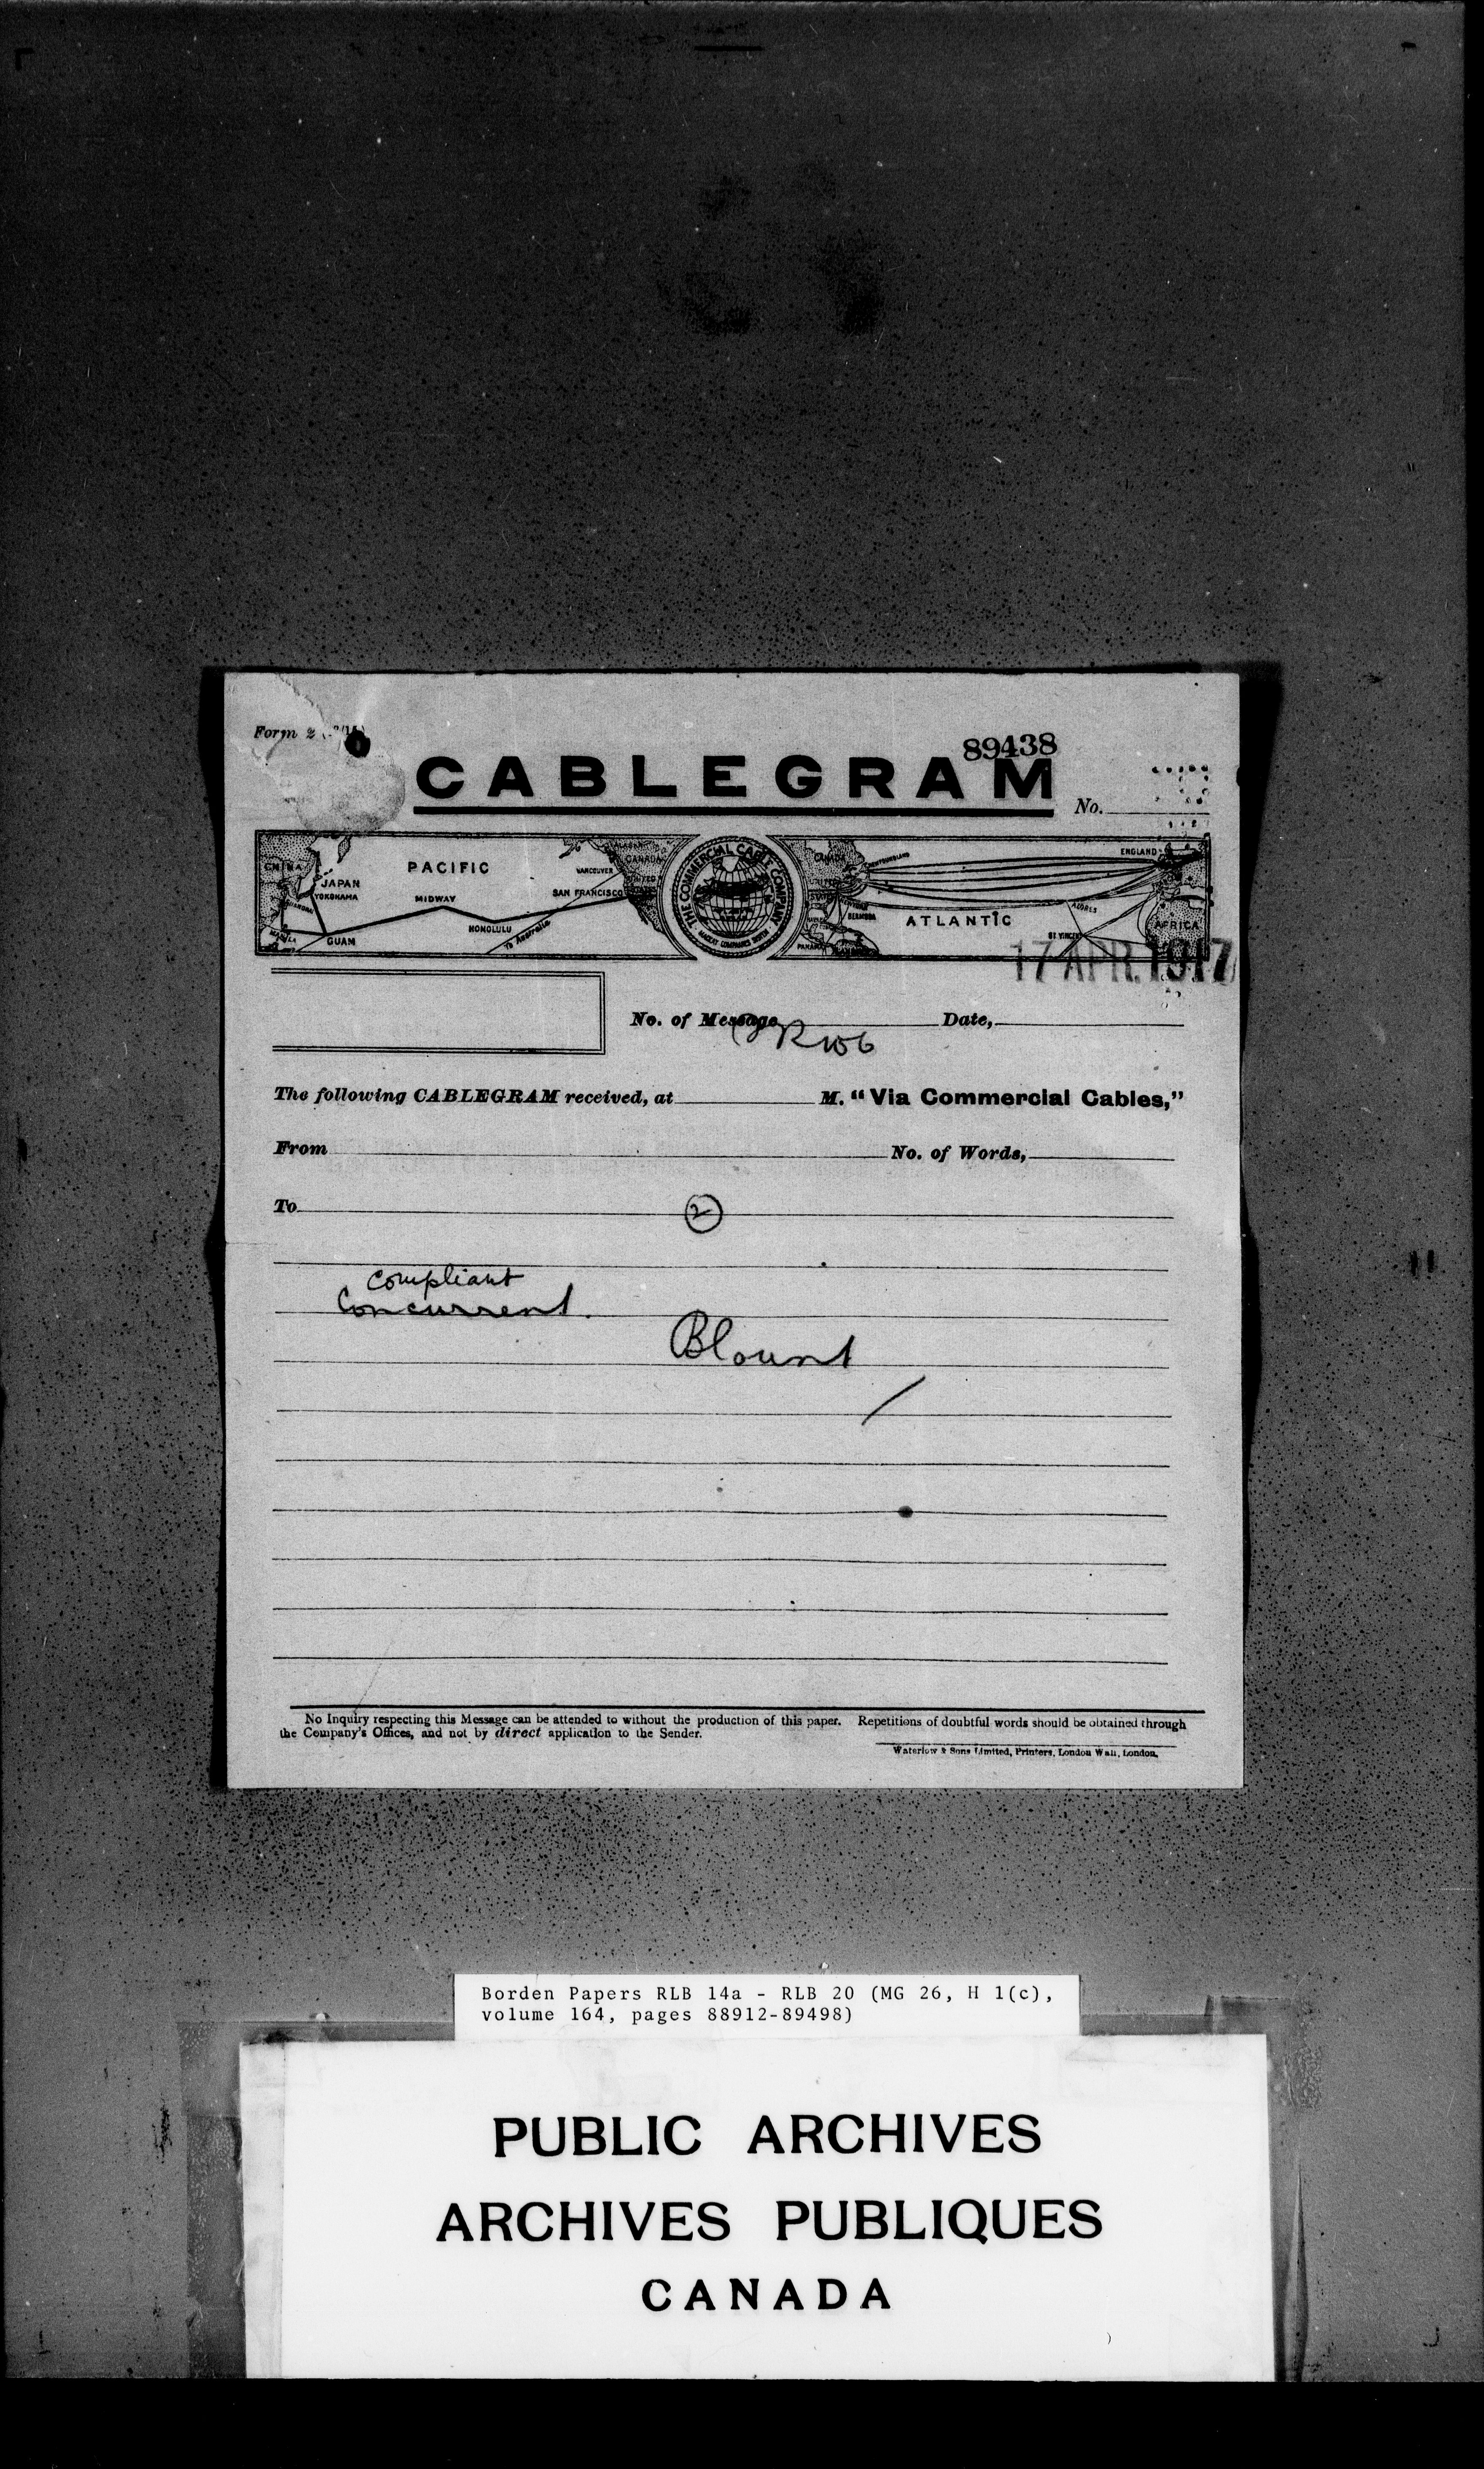 Form 2
89438
CABLEGRAM
No.
CHINA
JAPAN
YOKOHAMA
SHANGHAI
MANILA
GUAM
PACIFIC
MIDWAY
HONOLULU
To Australia
VANCOUVER
SAN FRANCISCO
ALASKA
CANADA
UNITED
STATES
THE COMMERCIAL CABLE COMPANY
MACKAY COMPANIES SYSTEM
CANADA
UNITED
STATES
NEWFOUNDLAND
BERMUDA
PANAMA
ATLANTIC
AZORES
ST VINCENT
ENGLAND
AFRICA
17 APR. 1917
No. of Message
Date,
The following CABLEGRAM received, at M. “Via Commercial Cables,”
From No. of Words,
To
2
compliant
Concurrent.
Blount
No Inquiry respecting this Message can be attended to without the production of this paper. Repetitions of doubtful words should be obtained through
the Company's Offices, and not by direct application to the Sender.
Waterlow & Sons Limited, Printers, London Wall, London.
Borden Papers RLB 14a - RLB 20 (MG 26, H 1(c),
volume 164, pages 88912-89498)
PUBLIC ARCHIVES
ARCHIVES PUBLIQUES
CANADA